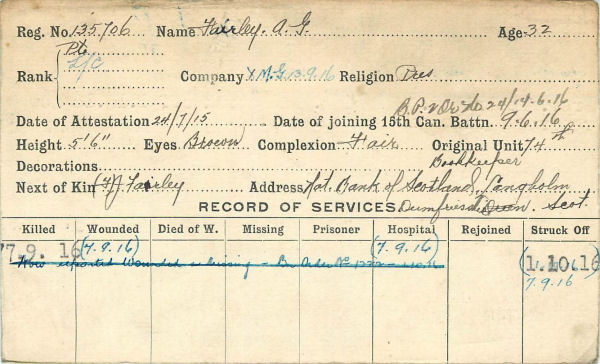 Reg. No. 135706 Name Fairley. A. G. Age 32
Pte
Rank L/C Company M.G. 13.9.16 Religion Pres
24/14-6-16
Date of Attestation 24/7/15 Date of joining 15th Can. Battn. 9-6-16
Height 5'6" Eyes Brown Complexion Fair Original Unit 74th
Decorations Bookkeeper
Next of Kin (F) J. Fairley Address Nat. Bank of Scotland, Langholm
RECORD OF SERVICES Dumfries Scot.
Killed Wounded Died of W. Missing Prisoner Hospital Rejoined Struck Off
7.9.16 (7.9.16) (7.9.16) 1.10.16
Now reported Wounded &
7.9.16